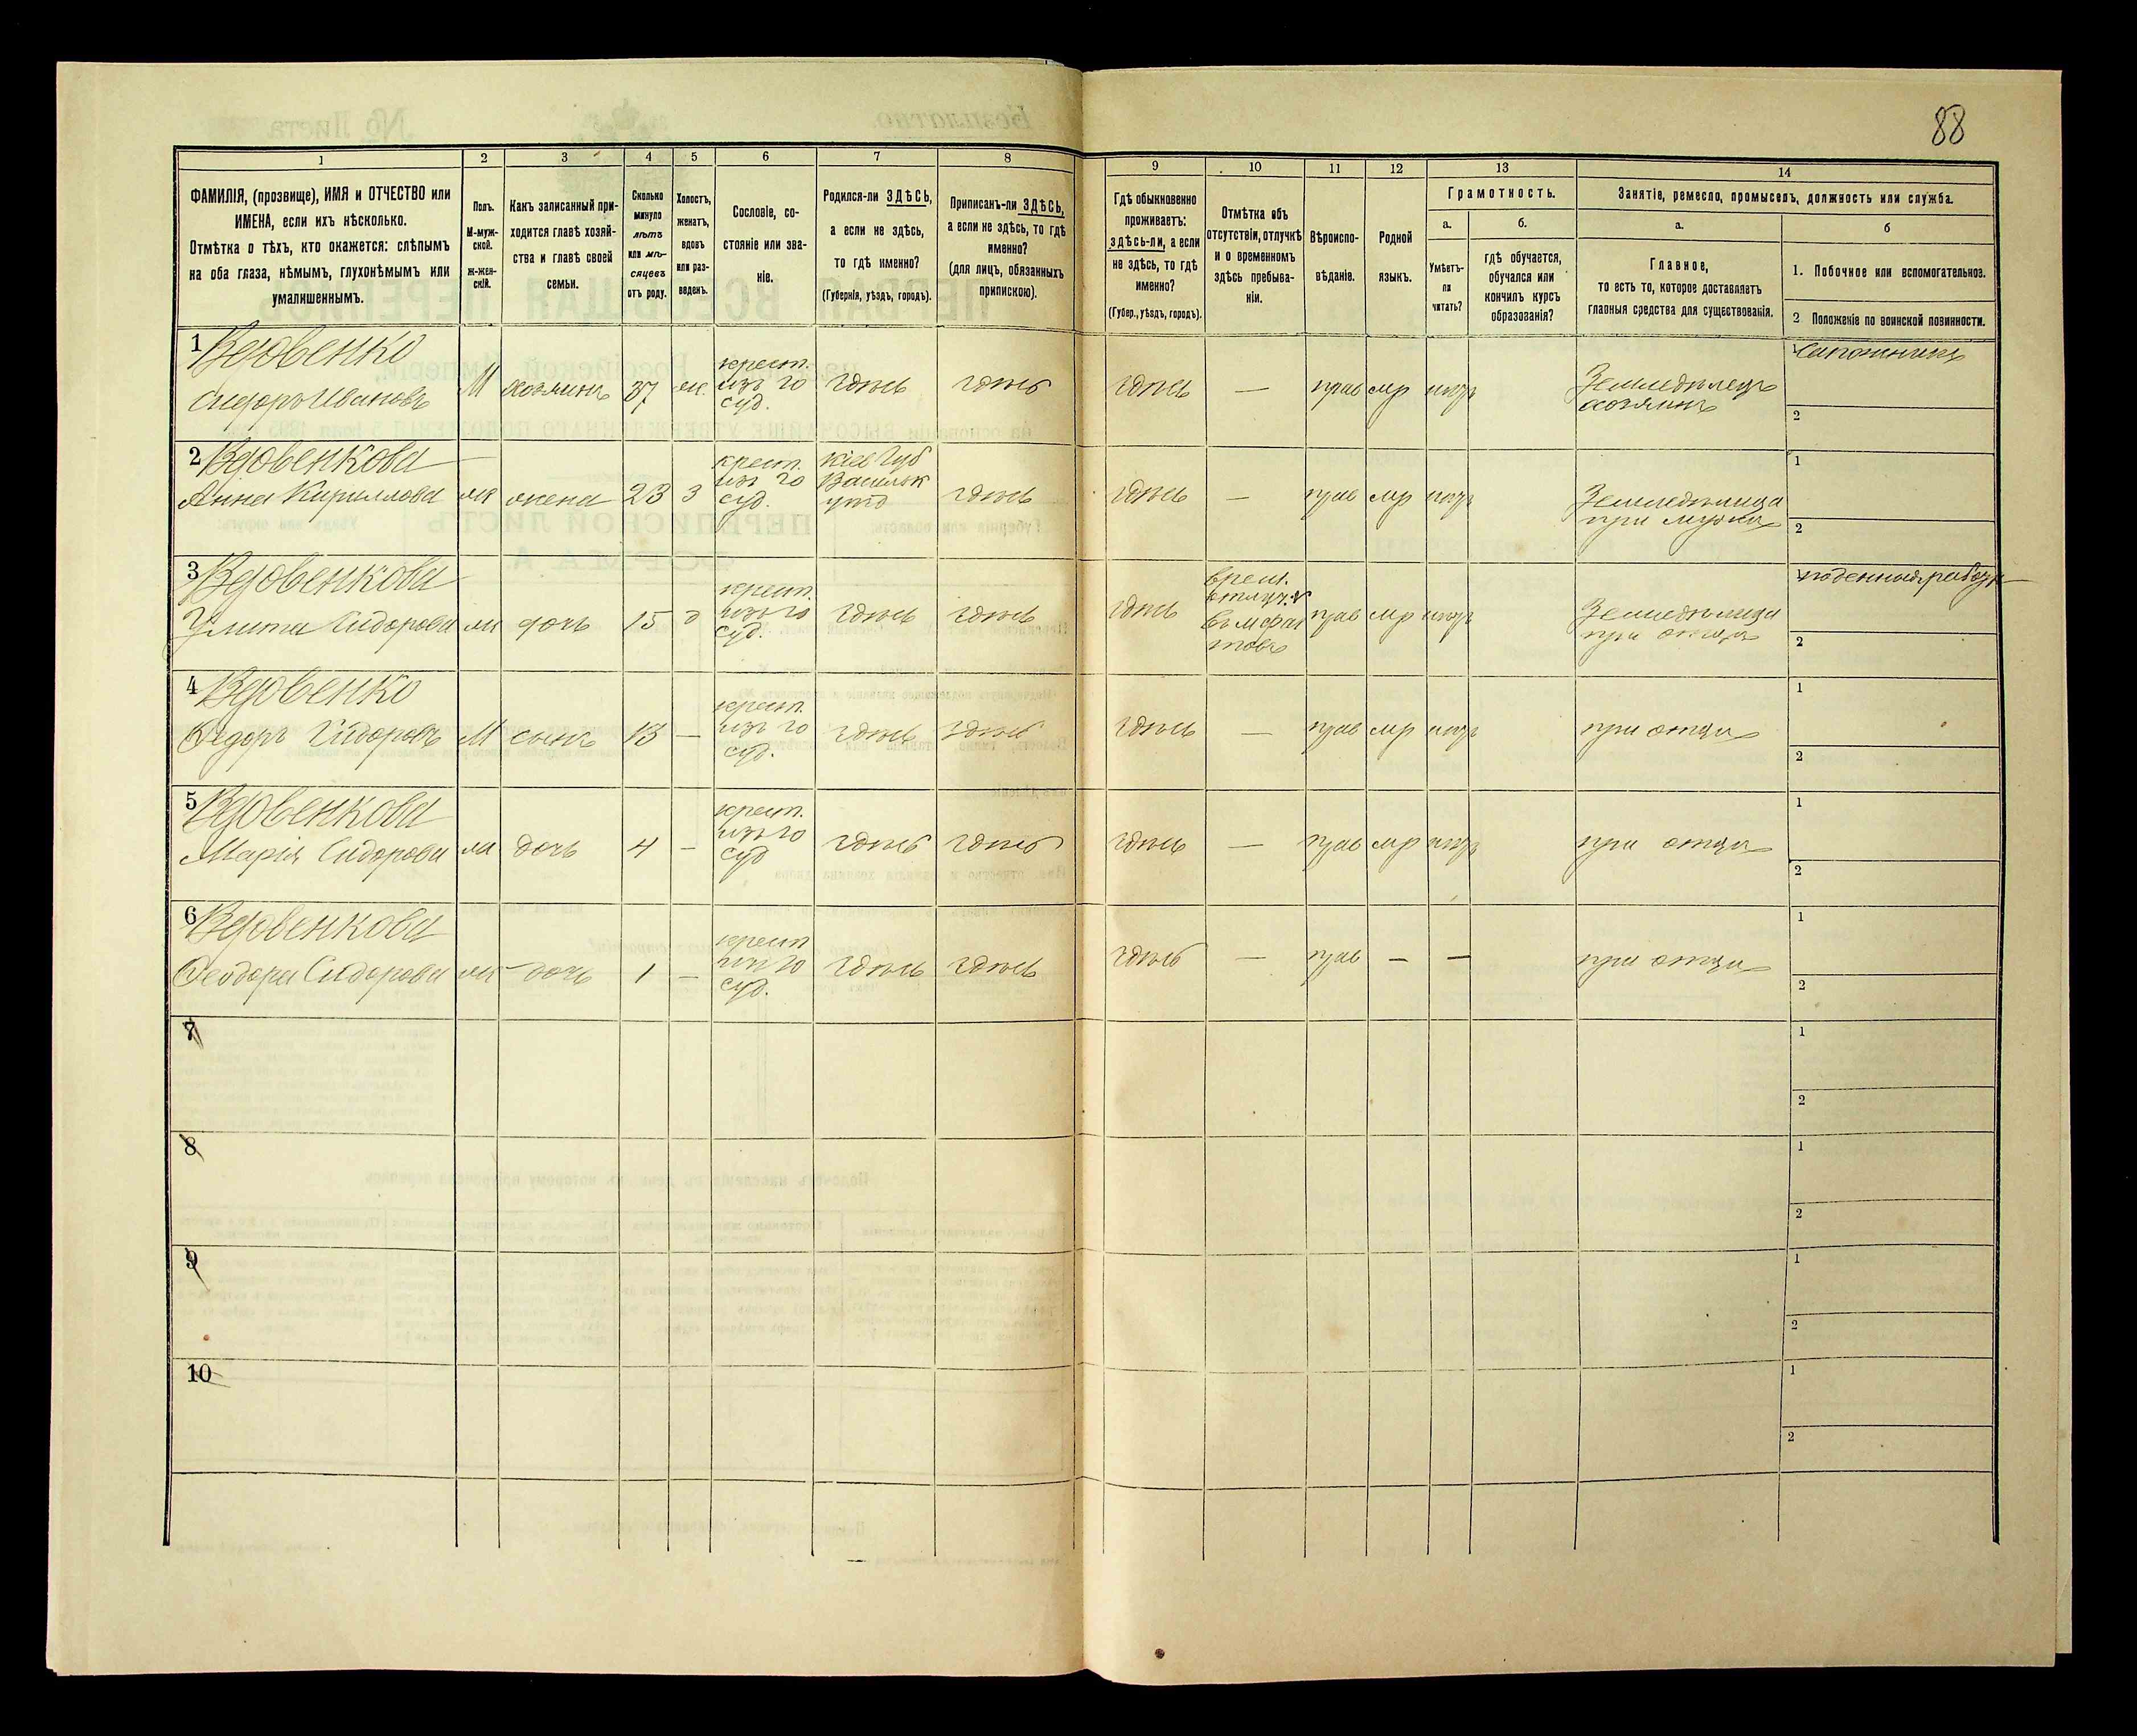 88
1
2
3
4
5
6
7
8
9
10
11
12
13
14
ФАМИЛІЯ, (прозвище), ИМЯ и ОТЧЕСТВО или
ИМЕНА, если ихъ нѣсколько.
Отмѣтка о тѣхъ, кто окажется: слѣпымъ
на оба глаза, нѣмымъ, глухонѣмымъ или
умалишеннымъ.
Полъ.
М-муж-
ской.
Ж-жен-
скій.
Какъ записанный при-
ходится главѣ хозяй-
ства и главѣ своей
семьи.
Сколько
минуло
лѣтъ
или мѣ-
сяцевъ
отъ роду.
Холостъ,
женатъ,
вдовъ
или раз-
веденъ.
Сословіе, со-
стояніе или зва-
ніе.
Родился-ли ЗДѢСЬ,
а если не здѣсь,
то гдѣ именно?
(Губернія, уѣздъ, городъ).
Приписанъ-ли ЗДѢСЬ,
а если не здѣсь, то гдѣ
именно?
(для лицъ, обязанныхъ
припискою).
Гдѣ обыкновенно
проживаетъ:
здѣсь-ли, а если
не здѣсь, то гдѣ
именно?
(Губер., уѣздъ, городъ).
Отмѣтка объ
отсутствіи, отлучкѣ
и о временномъ
здѣсь пребыва-
ніи.
Вѣроиспо-
вѣданіе.
Родной
языкъ.
Грамотность.
а.
Умѣетъ-
ли
читать?
б.
гдѣ обучается,
обучался или
кончилъ курсъ
образованія?
Занятіе, ремесло, промыселъ, должность или служба.
а.
Главное,
то есть то, которое доставляетъ
главныя средства для существованія.
б
1. Побочное или вспомогательное.
2 Положеніе по воинской повинности.
1 Вдовенко
Сидоръ Ивановъ
М
хозяинъ
37
ж.
крест.
изъ го
суд.
здѣсь
здѣсь
здѣсь
—
прав
мр
нѣтъ
Земледѣлецъ
хозяинъ
1 Сапожникъ
2
2 Вдовенкова
Анна Кириллова
ж
жена
23
З
крест.
изъ го
суд.
Кіев Губ
Васильк
уѣзд
здѣсь
здѣсь
—
прав
мр
нѣтъ
Земледѣлица
при мужѣ
1
2
3 Вдовенкова
Улита Сидорова
ж
дочь
15
д
крест.
изъ го
суд.
здѣсь
здѣсь
здѣсь
врем.
прав
мр
нѣтъ
Земледѣлица
при отцѣ
1 поденная работа
2
4 Вдовенко
Ѳедоръ Сидоровъ
М
сынъ
13
—
крест.
изъ го
суд.
здѣсь
здѣсь
здѣсь
—
прав
мр
нѣтъ
при отцѣ
1
2
5 Вдовенкова
Марія Сидорова
ж
дочь
4
—
крест.
изъ го
суд
здѣсь
здѣсь
здѣсь
—
прав
мр
нѣтъ
при отцѣ
1
2
6 Вдовенкова
Ѳеодора Сидорова
ж
дочь
1
—
крест
изъ го
суд.
здѣсь
здѣсь
здѣсь
—
прав
—
—
при отцѣ
1
2
7
1
2
8
1
2
9
1
2
10
1
2